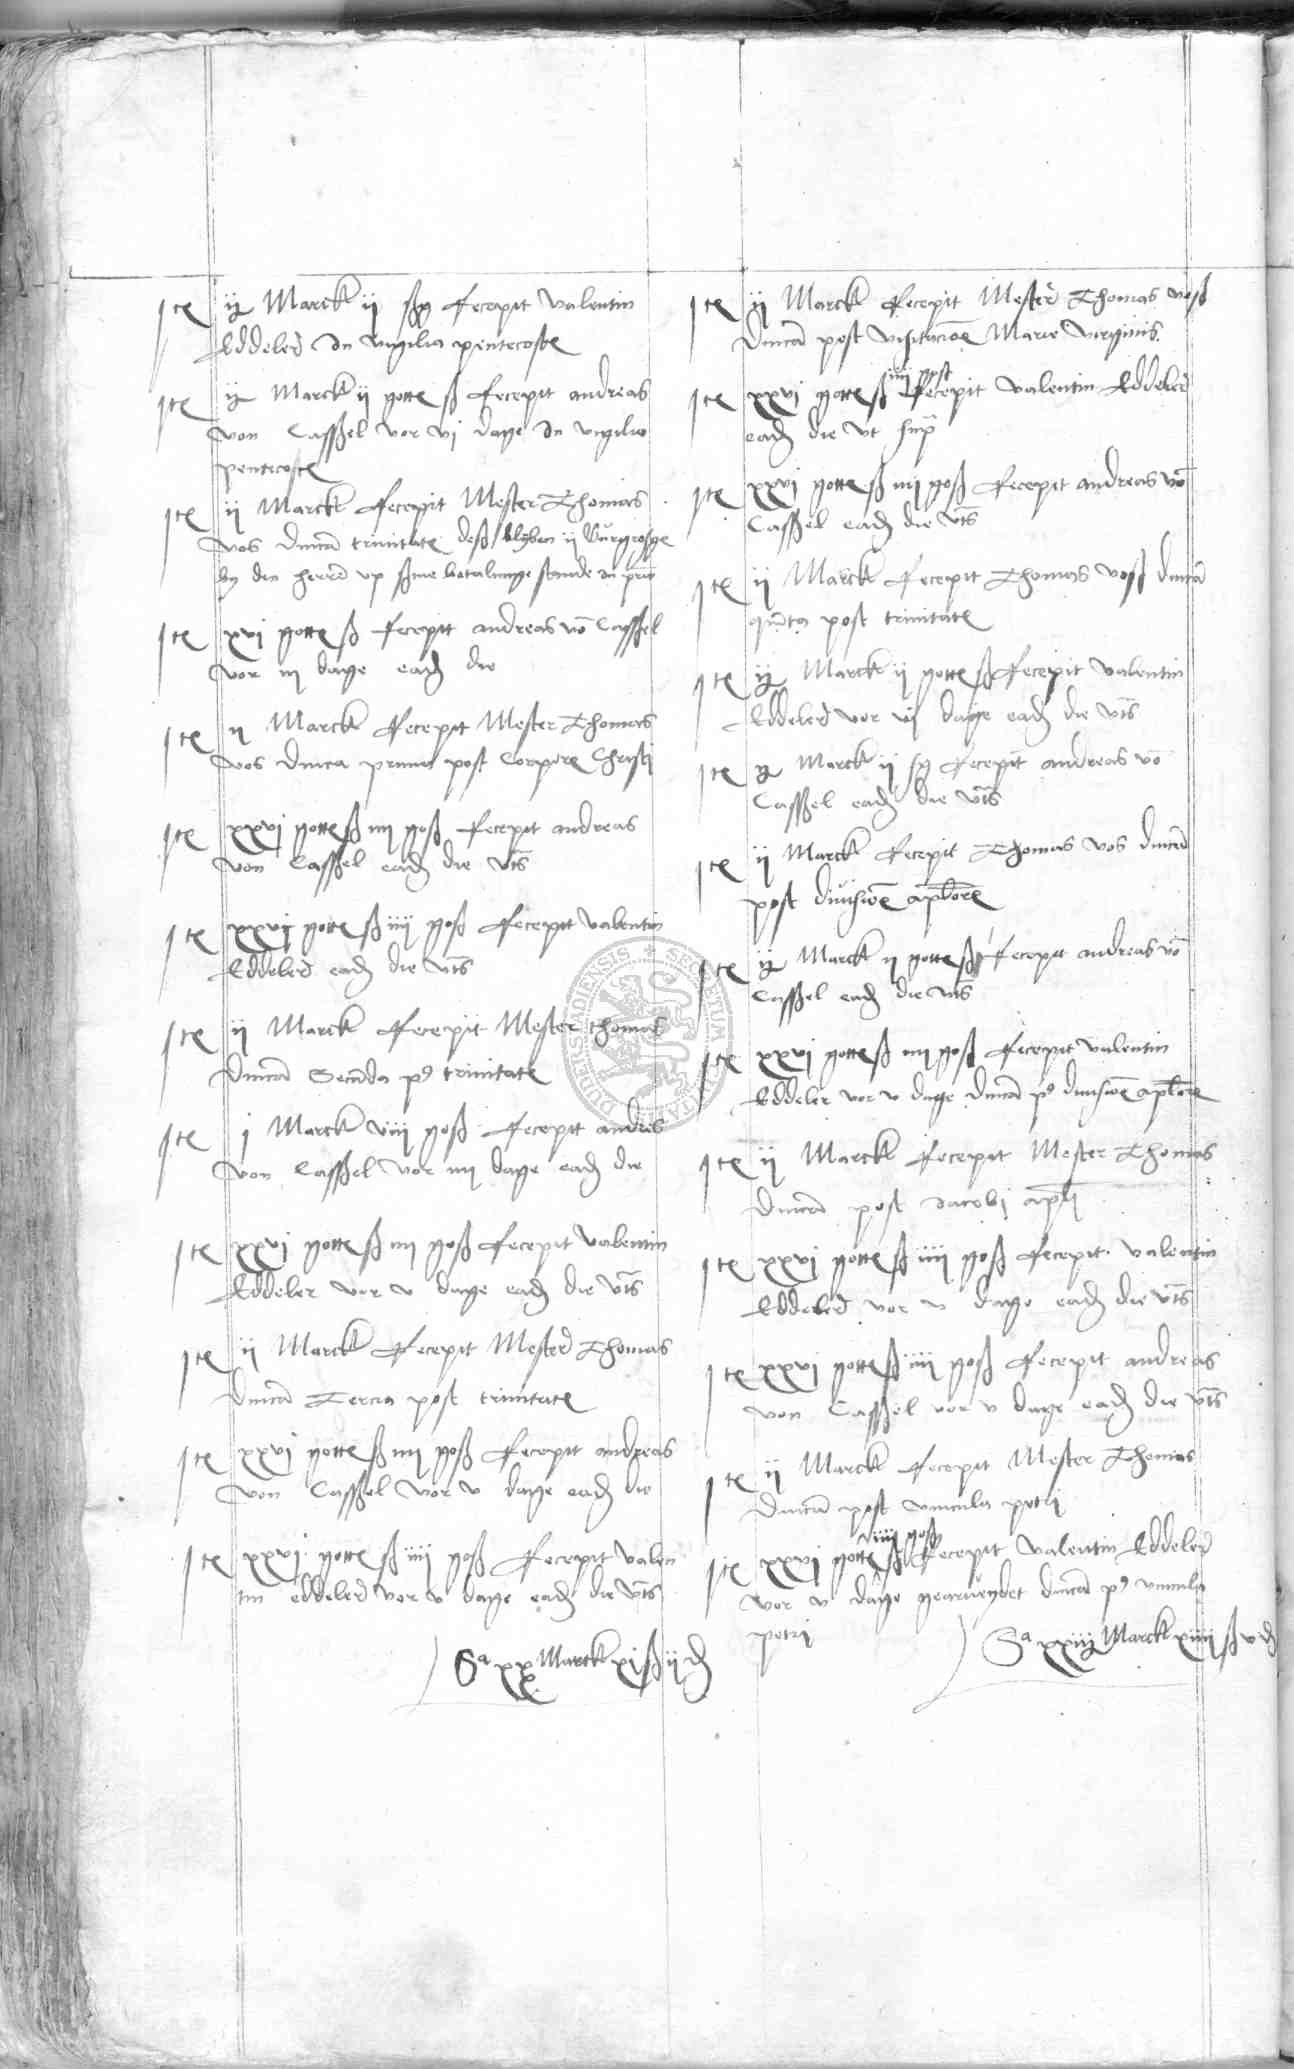 Ite ij Marck ij ß recepit Valentin
Eddeler in vigilia pentecoste
Ite ij Marck ij gotte ß recepit andreas
von Casssel vor vj dage in vigilia
pentecoste
Ite ij Marck recepit Mester Thomas
Vos dnica trinitate deß blyben ij
by den herre vp syne betalunge stande
Ite xvj gotte ß recepit andreas vo Casssel
vor iij dage eade die
Ite ij Marck recepit Mester Thomas
Vos dnica prima post Corpore Christi
Ite xxvj gotte ß iiij goß recepit andreas
von Casssel eade die vts
Ite xxvj gotte ß iiij goß recepit Valentin
Eddeler eade die vts
Ite ij Marck recepit Mester thomas
Dnica Secunda p9 trinitate
Ite j Marck viij goß recepit andres
von Casssel vor iiij dage eade die
Ite xxvj gotte ß iiij goß recepit Valentin
Eddeler vor v dage eade die vts
Ite ij Marck recepit Mester Thomas
Dnica Tercia post trinitate
Ite xxvj gotte ß iiij goß recepit andreas
von Casssel vor v dage eade die
Ite xxvj gotte ß iiij goß recepit Valen
tin eddeler vor v dage eade die vts
Sa xx Marck xj ß ij d
Ite ij Marck recepit Mester Thomas voß
Dnica post visitacoe Marie virginis
Ite xxvj gotte ß iiij goß recepit Valentin Eddeler
eade die vt sup
Ite xxvj gotte ß iiij goß recepit andreas vo
Casssel eade die vts
Ite ij Marck recepit Thomas voß dnica
quinta post trinitate
Ite ij Marck ij gotte ß recepit Valentin
Eddeler vor vj dage eade die vts
Ite ij Marck ij ß recepit andreas vo
Casssel eade die vts
Ite ij Marck recepit Thomas vos dnica
post divisioe aplore
Ite ij Marck ij gotte ß recepit andreas vo
Casssel eade die vts
Ite xxvj gotte ß iiij goß recepit Valentin
Eddeler vor v dage Dnica p9 divisioe aplore
Ite ij Marck recepit Mester Thomas
Dnica post Jacobi apli
Ite xxvj gotte ß iiij goß recepit Valentin
Eddeler vor v dage eade die vts
Ite xxvj gotte ß iiij goß recepit andreas
von Casssel vor v dage eade die vts
Ite ij Marck recepit Mester Thomas
Dnica post vincula petri
Ite xxvj gotte ß iiij goß recepit Valentin Eddeler
vor v dage gearveydet dnica p9 vincula
petri
Sa xxiij Marck xiiij ß v d